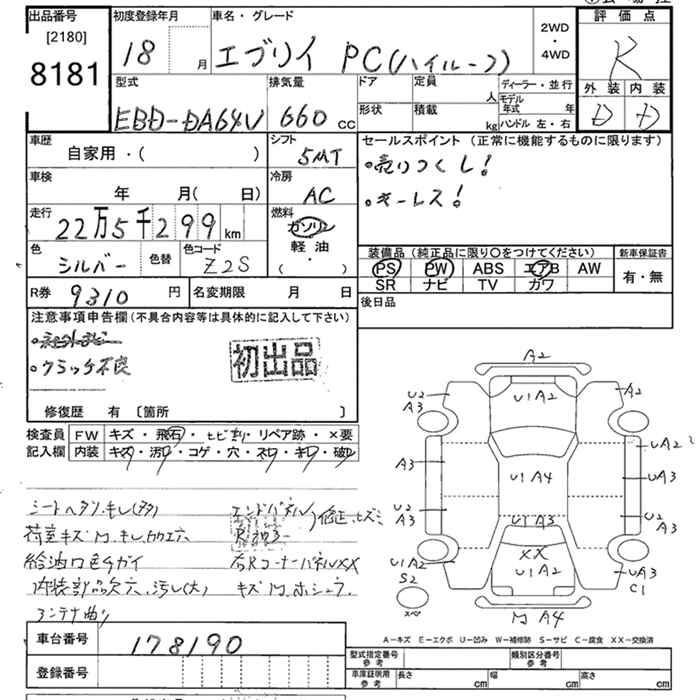 出品番号
[2180]
8181
初度登録年月
18 月
車名・グレード
エブリイ PC(ハイルーフ)
2WD
・
4WD
評価点
R
外装 内装
D D
型式
EBD-DA64V
排気量
660 cc
ドア
形状
定員 人
積載 kg
ディーラー・並行
モデル年式 年
ハンドル 左・右
車歴
自家用・( )
シフト
5MT
セールスポイント (正常に機能するものに限ります)
・売りつくし!
・キーレス!
車検
年 月( 日)
冷房
AC
走行
22万5千299 km
燃料
ガソリン
軽油
・( )
色
シルバー
色替
色コード
Z2S
装備品 (純正品に限り〇をつけてください)
PS PW ABS エアB AW
SR ナビ TV カワ
新車保証書
有・無
R券 9310 円
名変期限 月 日
後日品
注意事項申告欄 (不具合内容等は具体的に記入して下さい)
・クラッチ不良
初出品
修復歴 有 〔箇所 〕
検査員
記入欄
FW キズ・飛石・ヒビ割・リペア跡・×要
内装 キズ・汚レ・コゲ・穴・スレ・キレ・破レ
シートヘタリ、キレ(多)
荷室キズ凹、キレ、加工穴
給油口色チガイ
内装部品欠、穴、汚レ(大)
アンテナ曲リ
エンドパネル
Rフロアー
修正、ヒズミ
右RコーナーパネルXX
キズ凹、ホシュウ
A2
U1A2
U2
A3
A2
A3
U1A4
UA2
UA3
U2
A3
U1A3
U2
A3
XX
U1A2
U1A2
S2
UA3
C1
スペア
凹A4
A−キズ E−エクボ U−凹み W−補修跡 S−サビ C−腐食 XX−交換済
車台番号
178190
登録番号
型式指定番号
参考
類別区分番号
参考
車庫証明用
参考
長さ cm
幅 cm
高さ cm